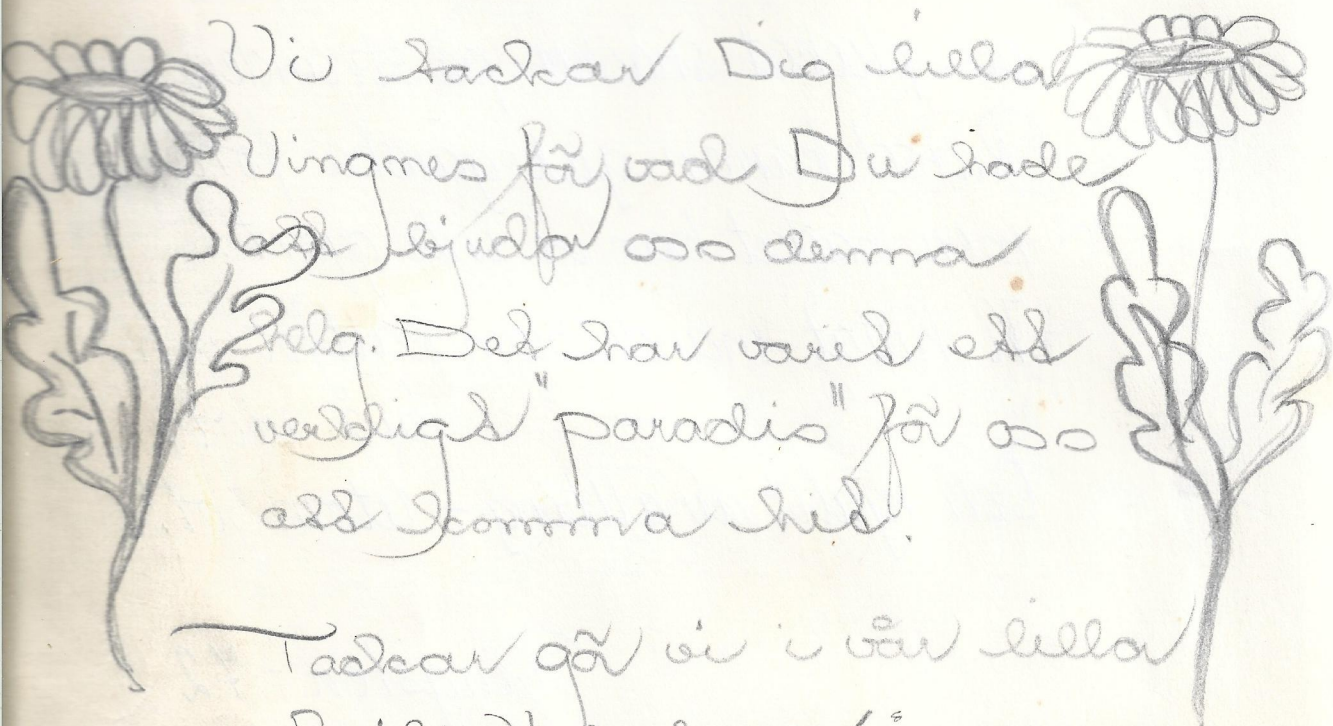 Vi tackar Dig lilla
Vingnes för vad Du hade
att bjuda oss denna
helg. Det har varit ett
verkligt "paradis" för oss
att komma hit.
Tackar gör vi i vår lilla